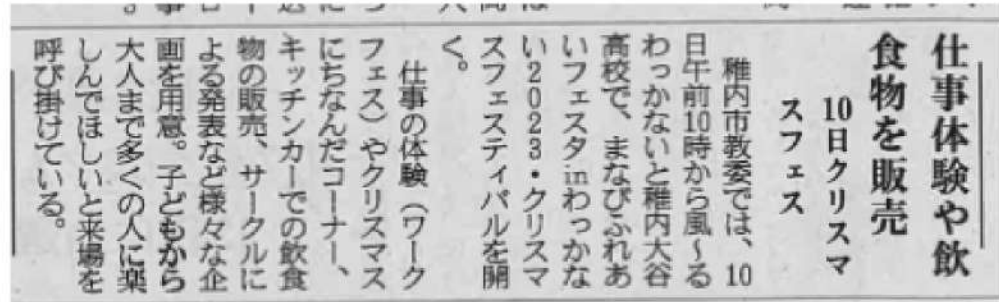 仕事体験や飲
食物を販売
10日クリスマ
スフェス
稚内市教委では、10
日午前10時から風～る
わっかないと稚内大谷
高校で、まなびふれあ
いフェスタinわっかな
い2023・クリスマ
スフェスティバルを開
く。
仕事の体験(ワーク
フェス)やクリスマス
にちなんだコーナー、
キッチンカーでの飲食
物の販売、サークルに
よる発表など様々な企
画を用意。子どもから
大人まで多くの人に楽
しんでほしいと来場を
呼び掛けている。